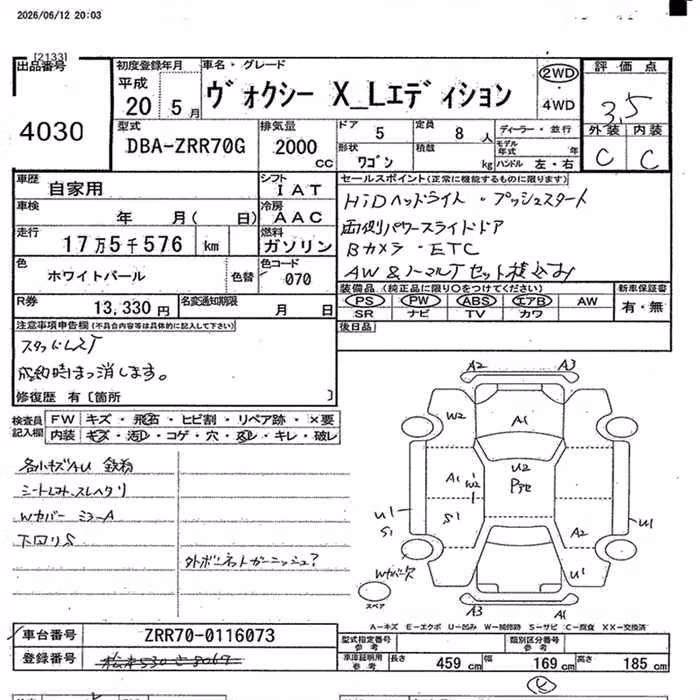 2026/06/12 20:03
[2133]
出品番号
4030
初度登録年月
平成
20 5月
車名・グレード
ヴォクシー X_Lエディション
2WD
4WD
評価点
3.5
外装 内装
C C
型式
DBA-ZRR70G
排気量
2000 cc
ドア 5
定員 8 人
形状 ワゴン
積載 kg
ディーラー・並行
モデル年式 年
ハンドル 左・右
車歴 自家用
シフト IAT
車検 年 月( 日)
冷房 AAC
走行 17万5千576 km
燃料 ガソリン
色 ホワイトパール
色替
色コード 070
R券 13,330 円
名変通知期限 月 日
セールスポイント(正常に機能するものに限ります)
HiDヘッドライト・プッシュスタート
両側パワースライドドア
Bカメラ・ETC
AW&ノーマルTセット積込み
装備品(純正品に限り○をつけてください)
新車保証書
PS PW ABS エアB AW
有・無
SR ナビ TV カワ
後日品
注意事項申告欄(不具合内容等は具体的に記入して下さい)
スタッドレスT
成約時まっ消します。
修復歴 有〔箇所 〕
検査員記入欄
FW キズ・飛石・ヒビ割・リペア跡・×要
内装 キズ・汚レ・コゲ・穴・スレ・キレ・破レ
各小キズAU
Wカバー ミラーA
下回りS
外ボンネットガーニッシュ?
A2 A3
W2
A1
U2
A1
W2
S1
U1
S1
U1
A2
U1
スペア
A3 A1
A−キズ E−エクボ U−凹み W−補修跡 S−サビ C−腐食 XX−交換済
車台番号 ZRR70-0116073
登録番号
型式指定番号 参考
類別区分番号 参考
車庫証明用 参考
長さ 459 cm
幅 169 cm
高さ 185 cm